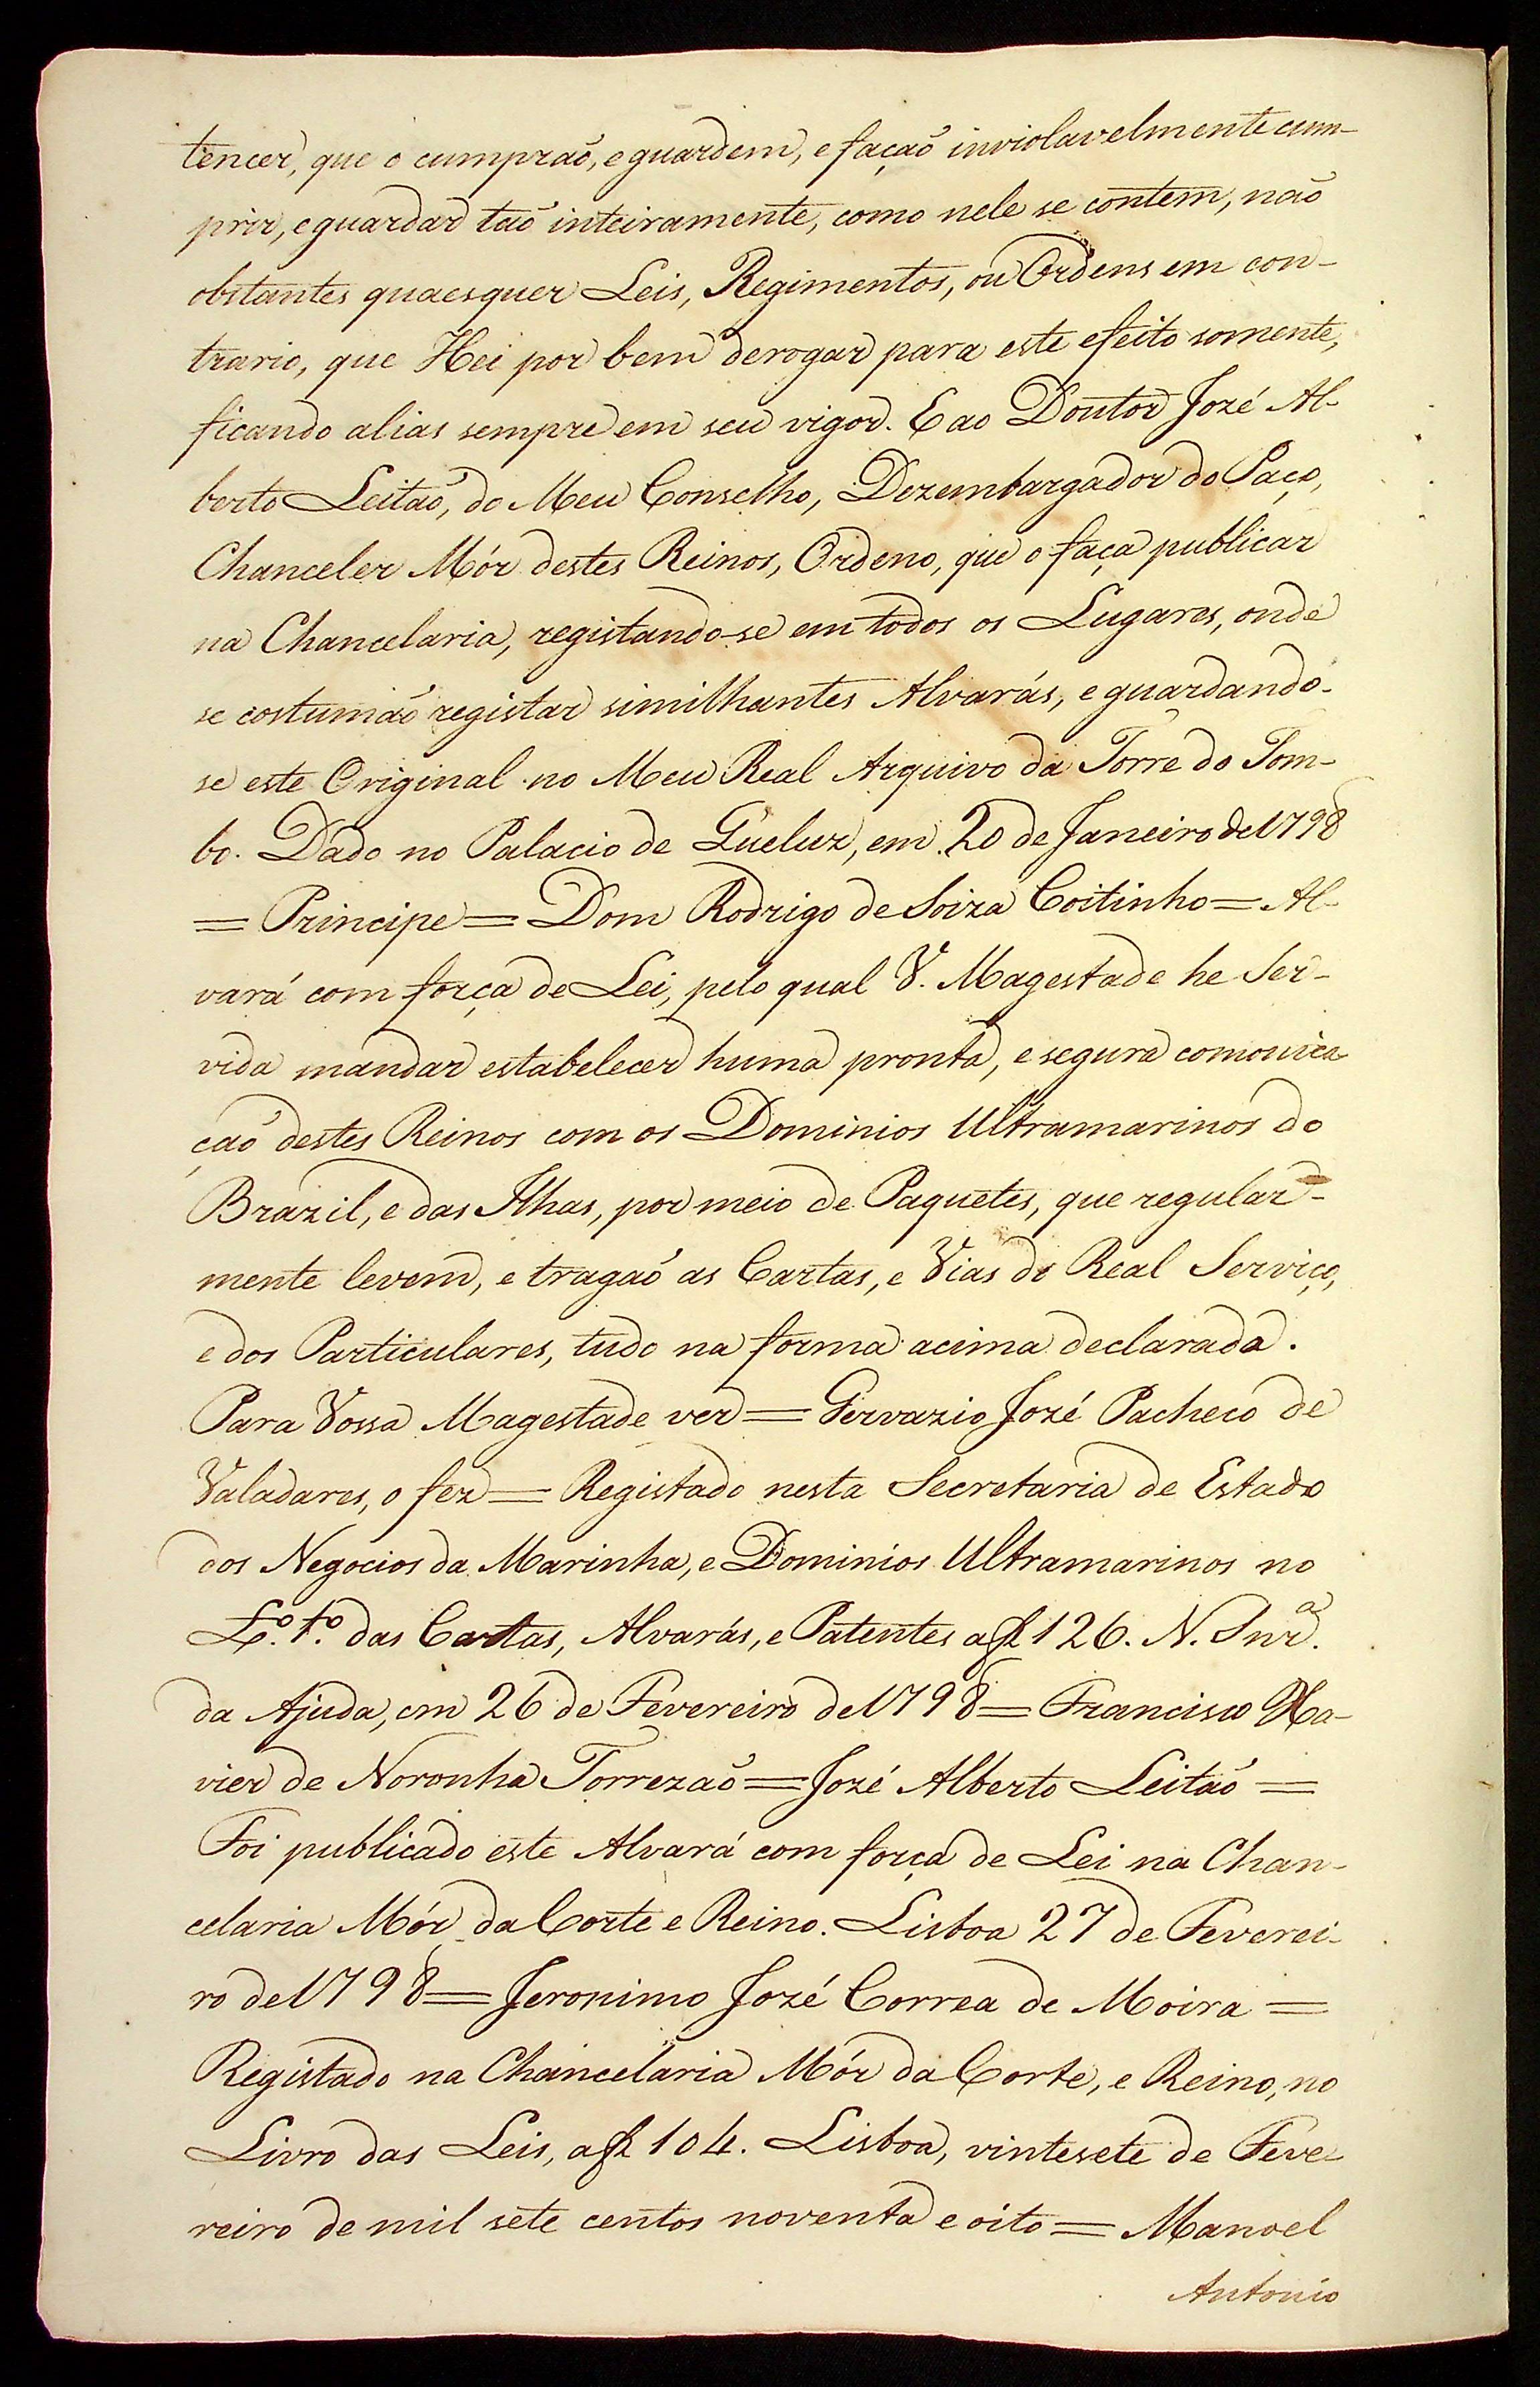 tencer, que o cumpraõ, e guardem, e façaõ inviolavelmente cum-
prir, e guardar taõ inteiramente, como nele se contem, naõ
obstantes quaesquer Leis, Regimentos, ou Ordens em con-
trario, que Hei por bem derogar para este efeito somente,
ficando alias sempre em seu vigor. E ao Doutor Jozé Al-
berto Leitaõ, do Meu Conselho, Dezembargador do Paço,
Chanceler Mór destes Reinos, Ordeno, que o faça publicar
na Chancelaria, registando-se em todos os Lugares, onde
se costumaõ registar similhantes Alvarás, e guardando-
se este Original no Meu Real Arquivo da Torre do Tom-
bo. Dado no Palacio de Queluz, em 20 de Janeiro de 1798
= Principe = Dom Rodrigo de Soiza Coitinho = Al-
vará com força de Lei, pelo qual V. Magestade he Ser-
vida mandar estabelecer huma pronta, e segura comonica
çaõ destes Reinos com os Dominios Ultramarinos do
Brazil, e das Ilhas, por meio de Paquetes, que regular-
mente levem, e tragaõ as Cartas, e Vias do Real Serviço,
e dos Particulares, tudo na forma acima declarada.
Para Vossa Magestade ver = Gervazio Jozé Pacheco de
Valadares, o fez = Registado nesta Secretaria de Estado
dos Negocios da Marinha, e Dominios Ultramarinos no
L.º 1.º das Cartas, Alvarás, e Patentes a f 126. N. Snr.ª
da Ajuda, em 26 de Fevereiro de 1798 = Francisco Xa-
vier de Noronha Torrezaõ = Jozé Alberto Leitaõ =
Foi publicado este Alvará com força de Lei na Chan-
celaria Mór da Corte e Reino. Lisboa 27 de Feverei-
ro de 1798 = Jeronimo Jozé Correa de Moira =
Registado na Chancelaria Mór da Corte, e Reino, no
Livro das Leis, a f 104. Lisboa, vintesete de Feve-
reiro de mil sete centos noventa e oito = Manoel
Antonio